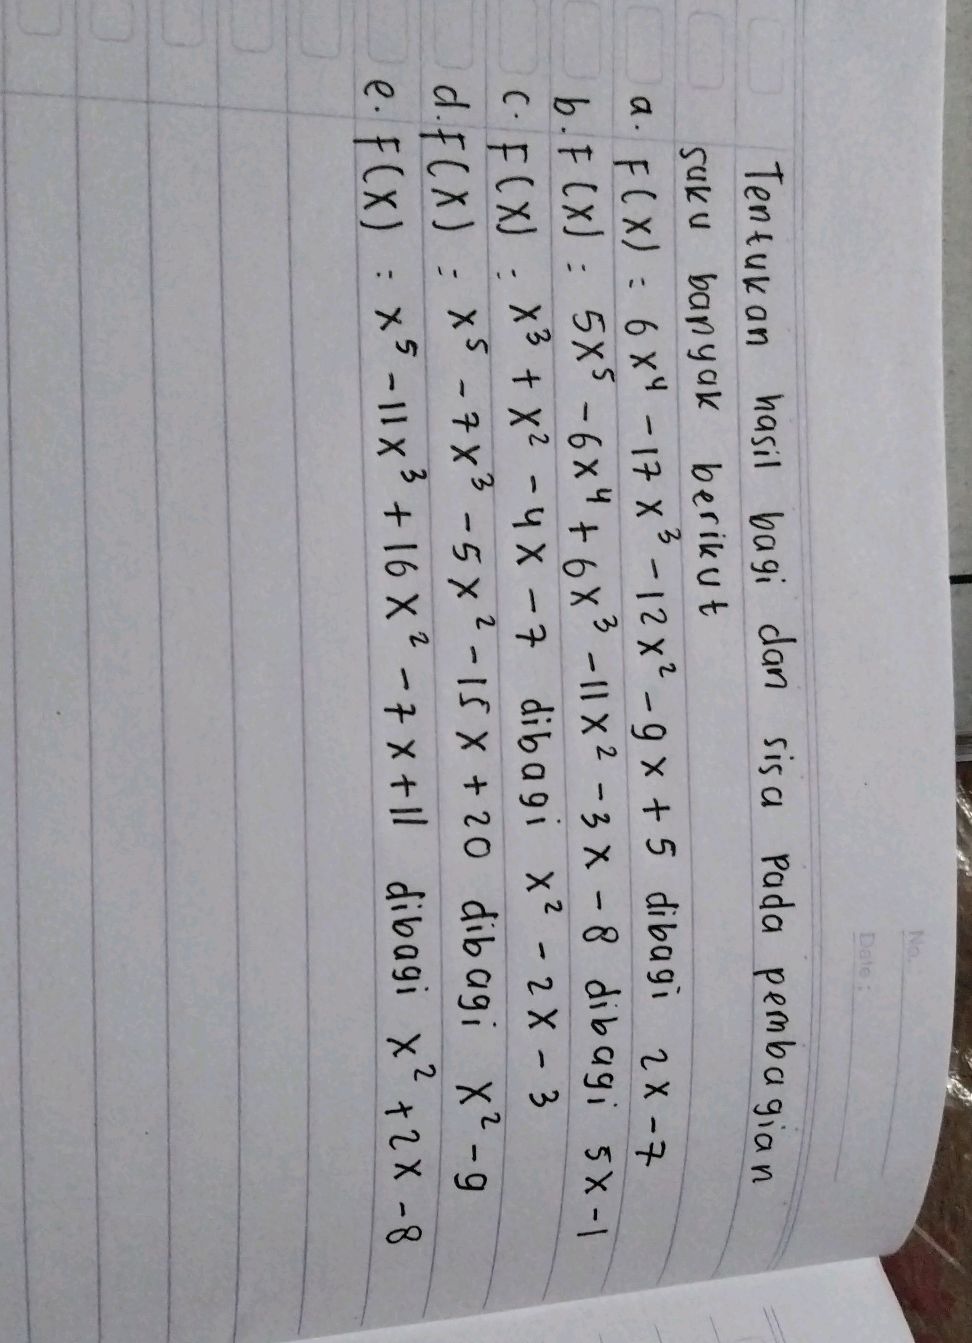 No.
Date :
Tentukan hasil bagi dan sisa pada pembagian
suku banyak berikut
a. F(x) = 6x⁴ - 17x³ - 12x² - 9x + 5 dibagi 2x - 7
b. F(x) = 5x⁵ - 6x⁴ + 6x³ - 11x² - 3x - 8 dibagi 5x - 1
c. F(x) = x³ + x² - 4x - 7 dibagi x² - 2x - 3
d. F(x) = x⁵ - 7x³ - 5x² - 15x + 20 dibagi x² - 9
e. F(x) = x⁵ - 11x³ + 16x² - 7x + 11 dibagi x² + 2x - 8